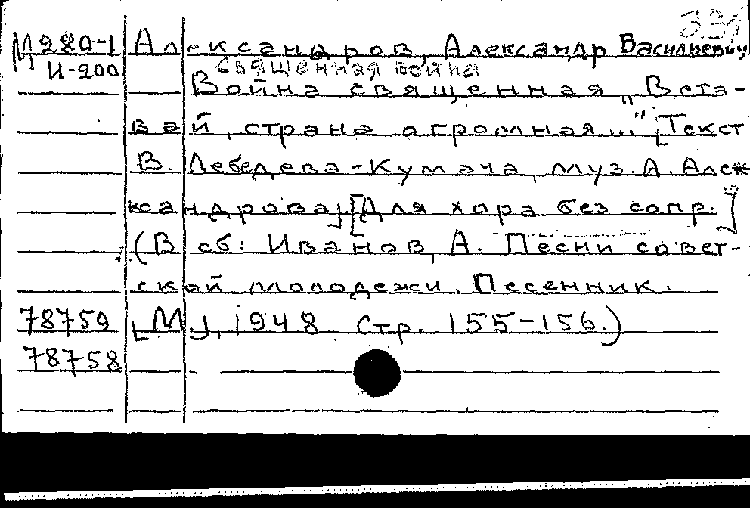 М980-1 Александров, Александр Васильевич
И-200 Священная война
Война священная „Вста-
вай, страна огромная..." [Текст
В. Лебедева-Кумача, муз. А. Алек-
сандрова] [Для хора без сопр.]
(В сб: Иванов, А. Песни совет-
ской молодежи. Песенник.
78759 [М], 1948 Стр. 155-156.)
78758